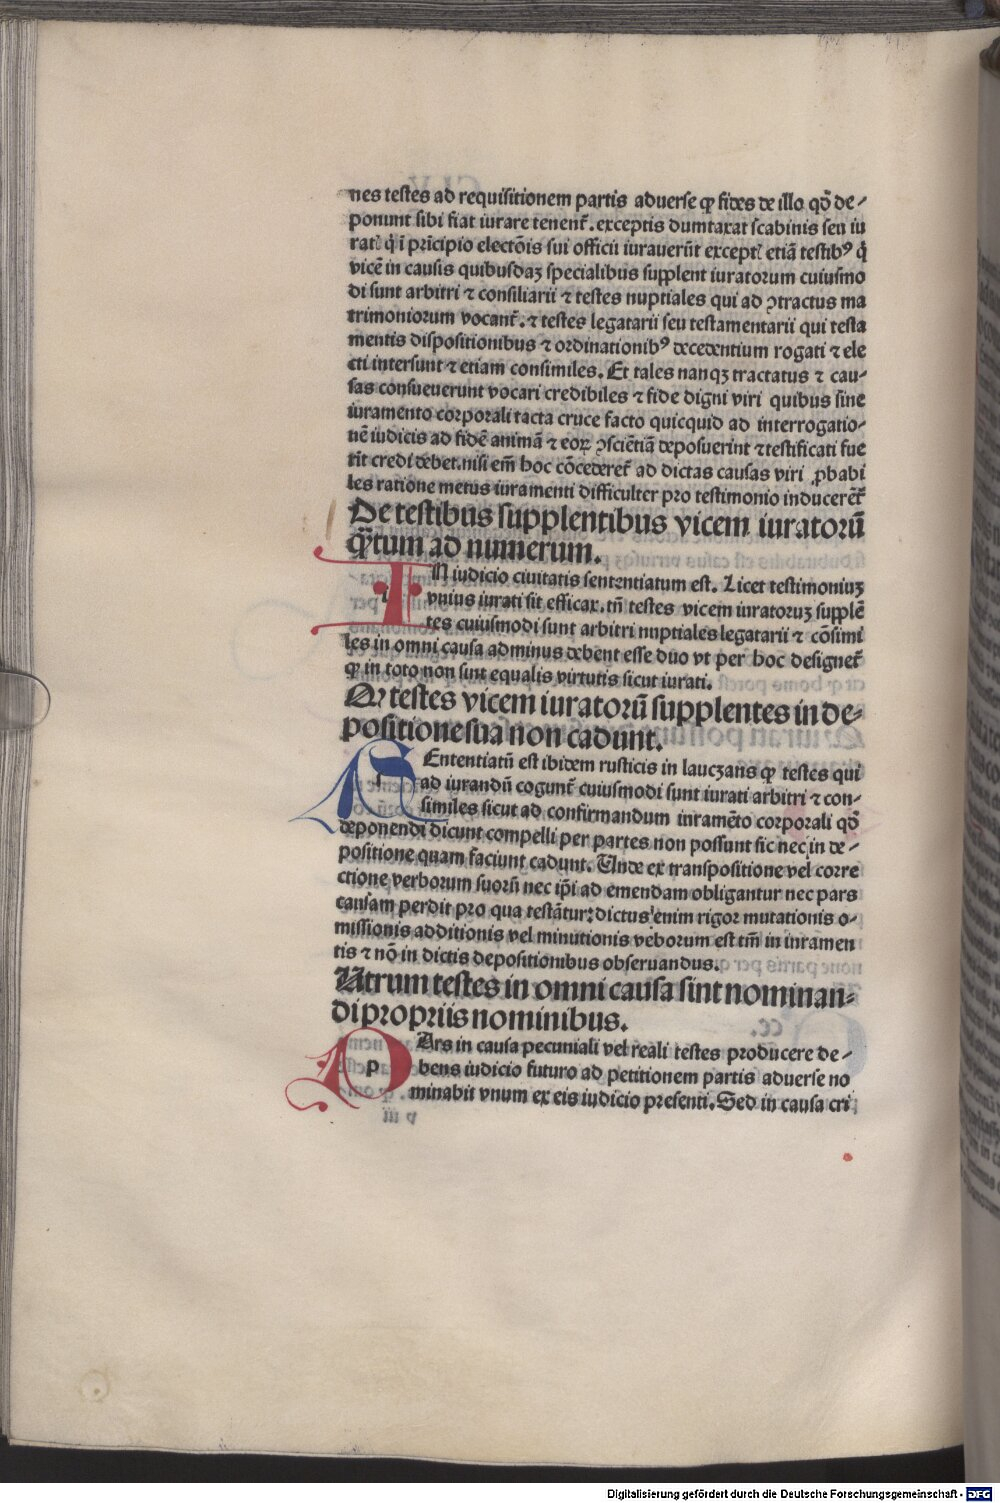 nes testes ad requisitionem partis aduerse ꝙ fides de illo qđ de⸗
ponunt sibi fiat iurare tenent̃. exceptis dumtaxat scabinis seu iu
rat? q̃ ĩ prĩcipio electõis sui officii iurauerũt except? etiã testibꝰ q̃
vicẽ in causis quibusdaꝫ specialibus supplent iuratorum cuiusmo
di sunt arbitri ⁊ consiliarii ⁊ testes nuptiales qui ad ꝯtractus ma
trimoniorum vocant̃. ⁊ testes legatarii seu testamentarii qui testa
mentis dispositionibus ⁊ ordinationibꝰ decedentium rogati ⁊ ele
cti intersunt ⁊ etiam consimiles. Et tales nanqꝫ tractatus ⁊ cau⸗
sas consueuerunt vocari credibiles ⁊ fide digni viri quibus sine
iuramento corporali tacta cruce facto quicquid ad interrogatio⸗
nẽ iudicis ad fidẽ animã ⁊ eoꝝ ꝯsciẽtiã deposuerint ⁊ testificati fue
rĩt credi debet. nisi em̃ hoc cõcederet̃ ad dictas causas viri ꝓbabi
les ratione metus iuramenti difficulter pro testimonio inducerẽt̃
De testibus supplentibus vicem iuratorũ
q̃tum ad numerum.
i N iudicio ciuitatis sententiatum est. Licet testimoniuꝫ
vnius iurati sit efficax. tñ testes vicem iuratoruꝫ supplẽ
tes cuiusmodi sunt arbitri nuptiales legatarii ⁊ cõsimi
les in omni causa adminus debent esse duo vt per hoc designet̃
ꝙ in toto non sint equalis virtutis sicut iurati.
Qꝙ testes vicem iuratorũ supplentes in de⸗
positione sua non cadunt.
ſ Ententiatũ est ibidem rusticis in lauczans ꝙ testes qui
ad iurandũ cogunt̃ cuiusmodi sunt iurati arbitri ⁊ con⸗
similes sicut ad confirmandum inramẽto corporali qđ
deponendi dicunt compelli per partes non possunt sic nec in de⸗
positione quam faciunt cadunt. Unde ex transpositione vel corre
ctione verborum suorũ nec ip̃i ad emendam obligantur nec pars
causam perdit pro qua testãtur: dictus enim rigor mutationis o⸗
missionis additionis vel minutionis veborum est tm̃ in inramen
tis ⁊ nõ in dictis depositionibus obseruandus.
Utrum testes in omni causa sint nominan⸗
di propriis nominibus.
p Ars in causa pecuniali vel reali testes producere de⸗
bens iudicio futuro ad petitionem partis aduerse no
minabit vnum ex eis iudicio presenti. Sed in causa cri
Digitalisierung gefördert durch die Deutsche Forschungsgemeinschaft - DFG